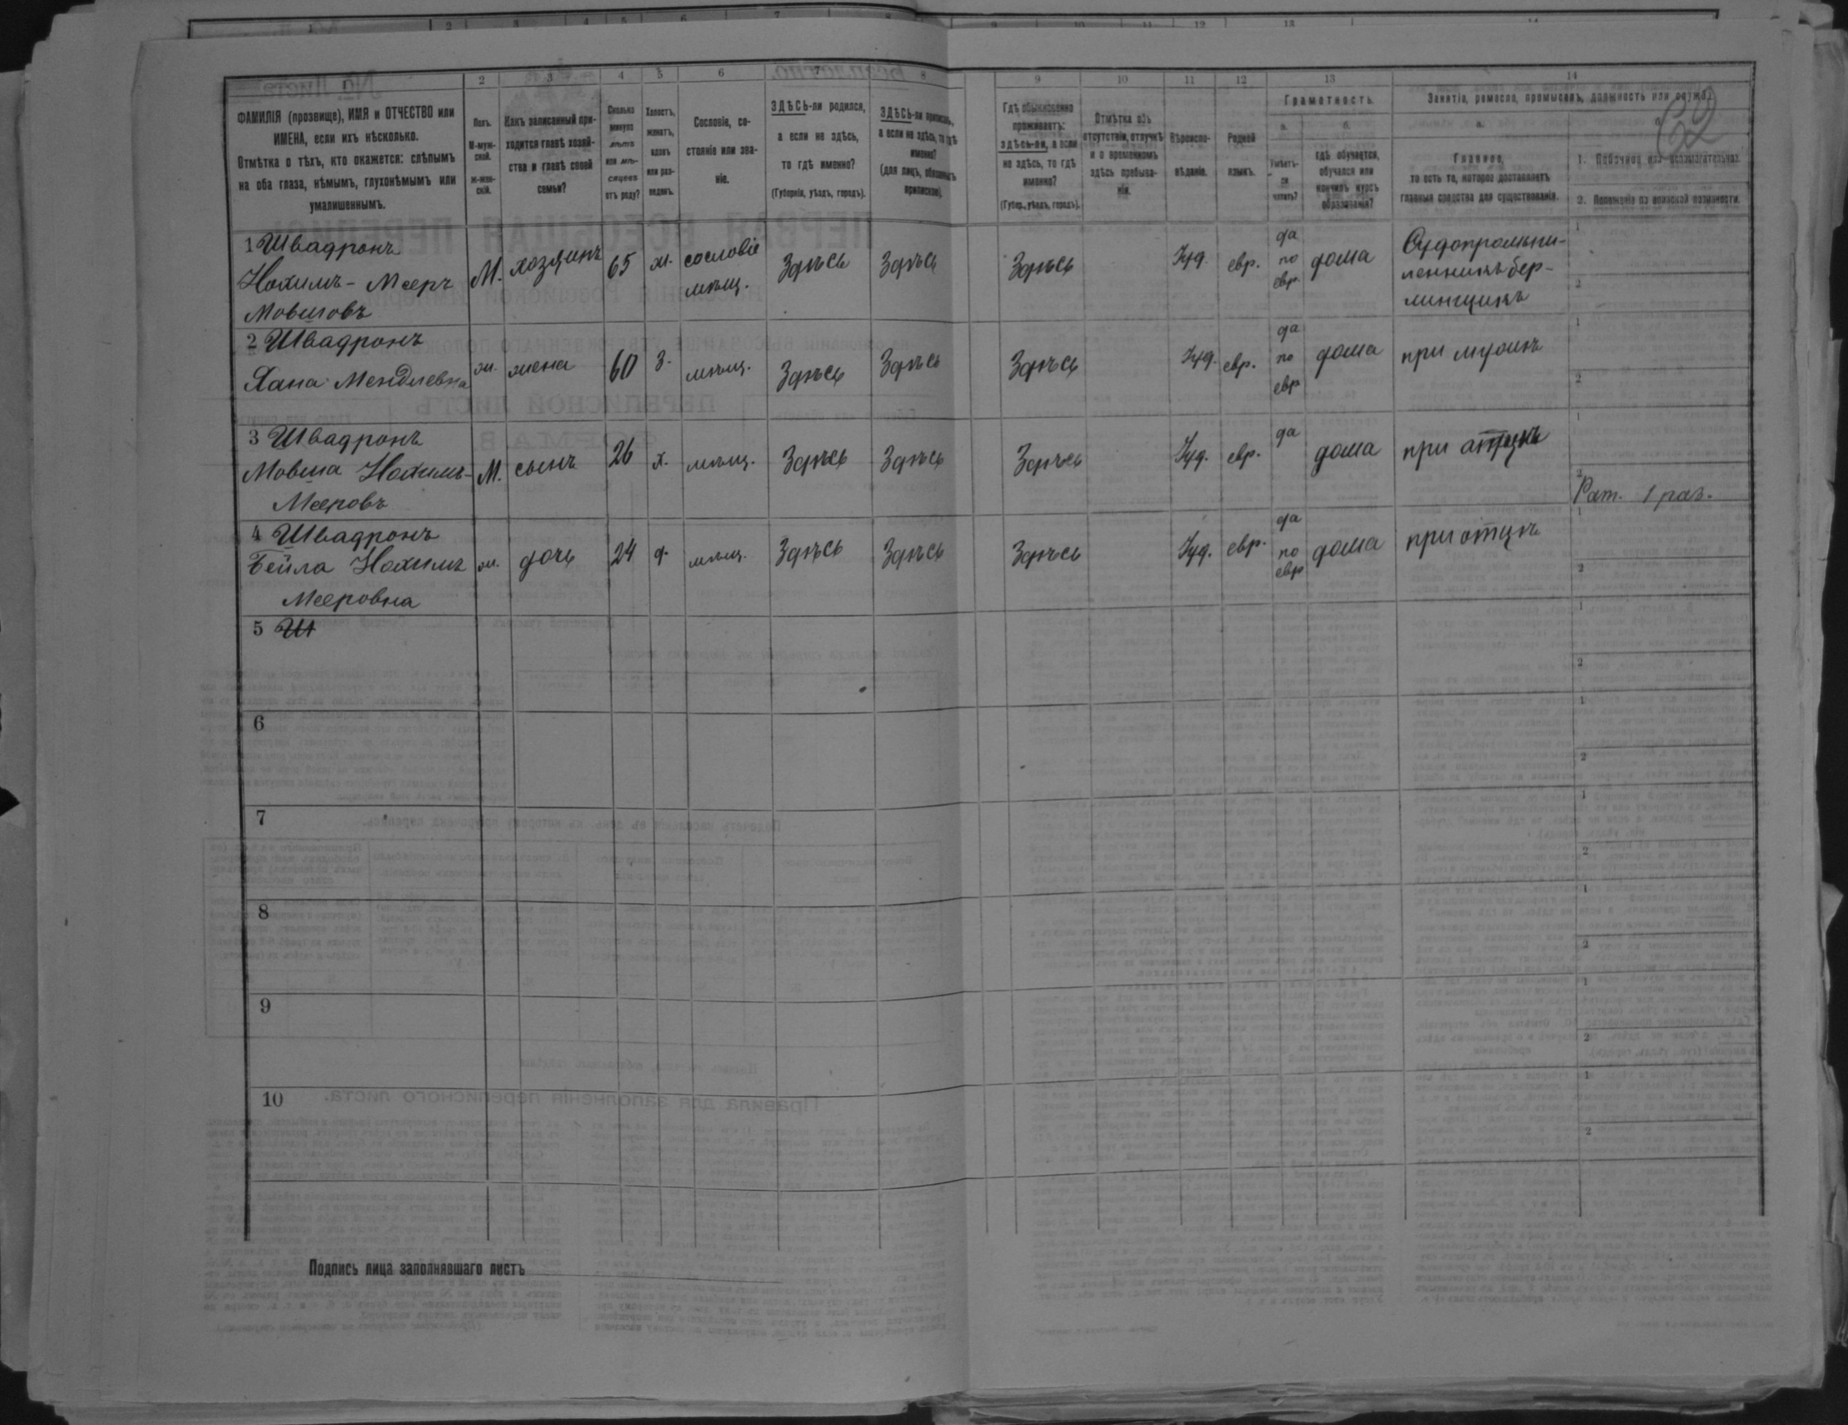 1 2 3 4 5 6 7 8 9 10 11 12 13 14
62
ФАМИЛІЯ (прозвище), ИМЯ и ОТЧЕСТВО или
ИМЕНА, если ихъ нѣсколько.
Отмѣтка о тѣхъ, кто окажется: слѣпымъ
на оба глаза, нѣмымъ, глухонѣмымъ или
умалишеннымъ.
Полъ.
М-муж-
ской.
ж-жен-
скій.
Какъ записанный при-
ходится главѣ хозяй-
ства и главѣ своей
семьи?
Сколько
минуло
лѣтъ
или мѣ-
сяцевъ
отъ роду?
Холостъ,
женатъ,
вдовъ
или раз-
веденъ.
Сословіе, со-
стояніе или зва-
ніе.
ЗДѢСЬ-ли родился,
а если не здѣсь,
то гдѣ именно?
(Губернія, уѣздъ, городъ).
ЗДѢСЬ-ли приписанъ,
а если не здѣсь, то гдѣ
именно?
(для лицъ, обязанныхъ
припиской).
Гдѣ обыкновенно
проживаетъ:
здѣсь-ли, а если
не здѣсь, то гдѣ
именно?
(Губер., уѣздъ, городъ).
Отмѣтка объ
отсутствіи, отлучкѣ
и о временномъ
здѣсь пребыва-
ніи.
Вѣроиспо-
вѣданіе.
Родной
языкъ.
Грамотность.
а. б.
Умѣетъ-
ли
читать?
Гдѣ обучается,
обучался или
кончилъ курсъ
образованія?
Занятіе, ремесло, промыселъ, должность или служба.
Главное,
то есть то, которое доставляетъ
главныя средства для существованія.
1. Побочное или вспомогательное.
2. Положеніе по воинской повинности.
1 Швадронъ
Нохимъ-Мееръ
Мовшовъ
М. хозяинъ 65 ж. сословіе
мѣщ.
Здѣсь Здѣсь Здѣсь Іуд. евр.
да
по
евр.
дома
1
2
2 Швадронъ
Хана Менделевна
ж. жена 60 З. мѣщ. Здѣсь Здѣсь Здѣсь Іуд. евр.
да
по
евр
дома при мужѣ
1
2
3 Швадронъ
Мовша Нохимъ-
Мееровъ
М. сынъ 26 х. мѣщ. Здѣсь Здѣсь Здѣсь Іуд. евр. да дома при отцѣ
1
2
Рат. 1 раз.
4 Швадронъ
Бейла Нохимъ
Мееровна
ж. дочь 24 д. мѣщ. Здѣсь Здѣсь Здѣсь Іуд. евр.
да
по
евр
дома при отцѣ
1
2
5 Ш
1
2
6
1
2
7
1
2
8
1
2
9
1
2
10
1
2
Подпись лица заполнявшаго листъ